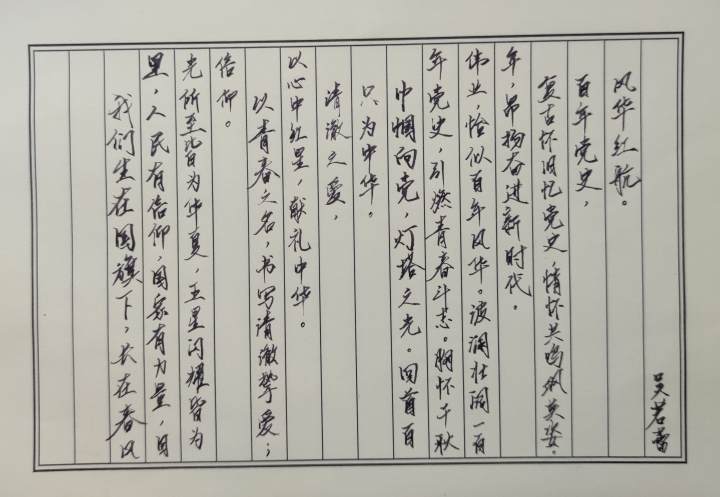 我们生在国旗下，长在春风
里，人民有信仰，国家有力量，目
光所至皆为华夏，五星闪耀皆为
信仰。
以青春之名，书写清澈挚爱；
以心中红星，献礼中华。
清澈之爱，
只为中华。
巾帼向党，灯塔之光。回首百
年党史，引燃青春斗志。胸怀千秋
伟业，恰似百年风华。波澜壮阔一百
年，昂扬奋进新时代。
复古怀旧忆党史，情怀共鸣飒英姿。
百年党史，
风华红航。
吴若蕾